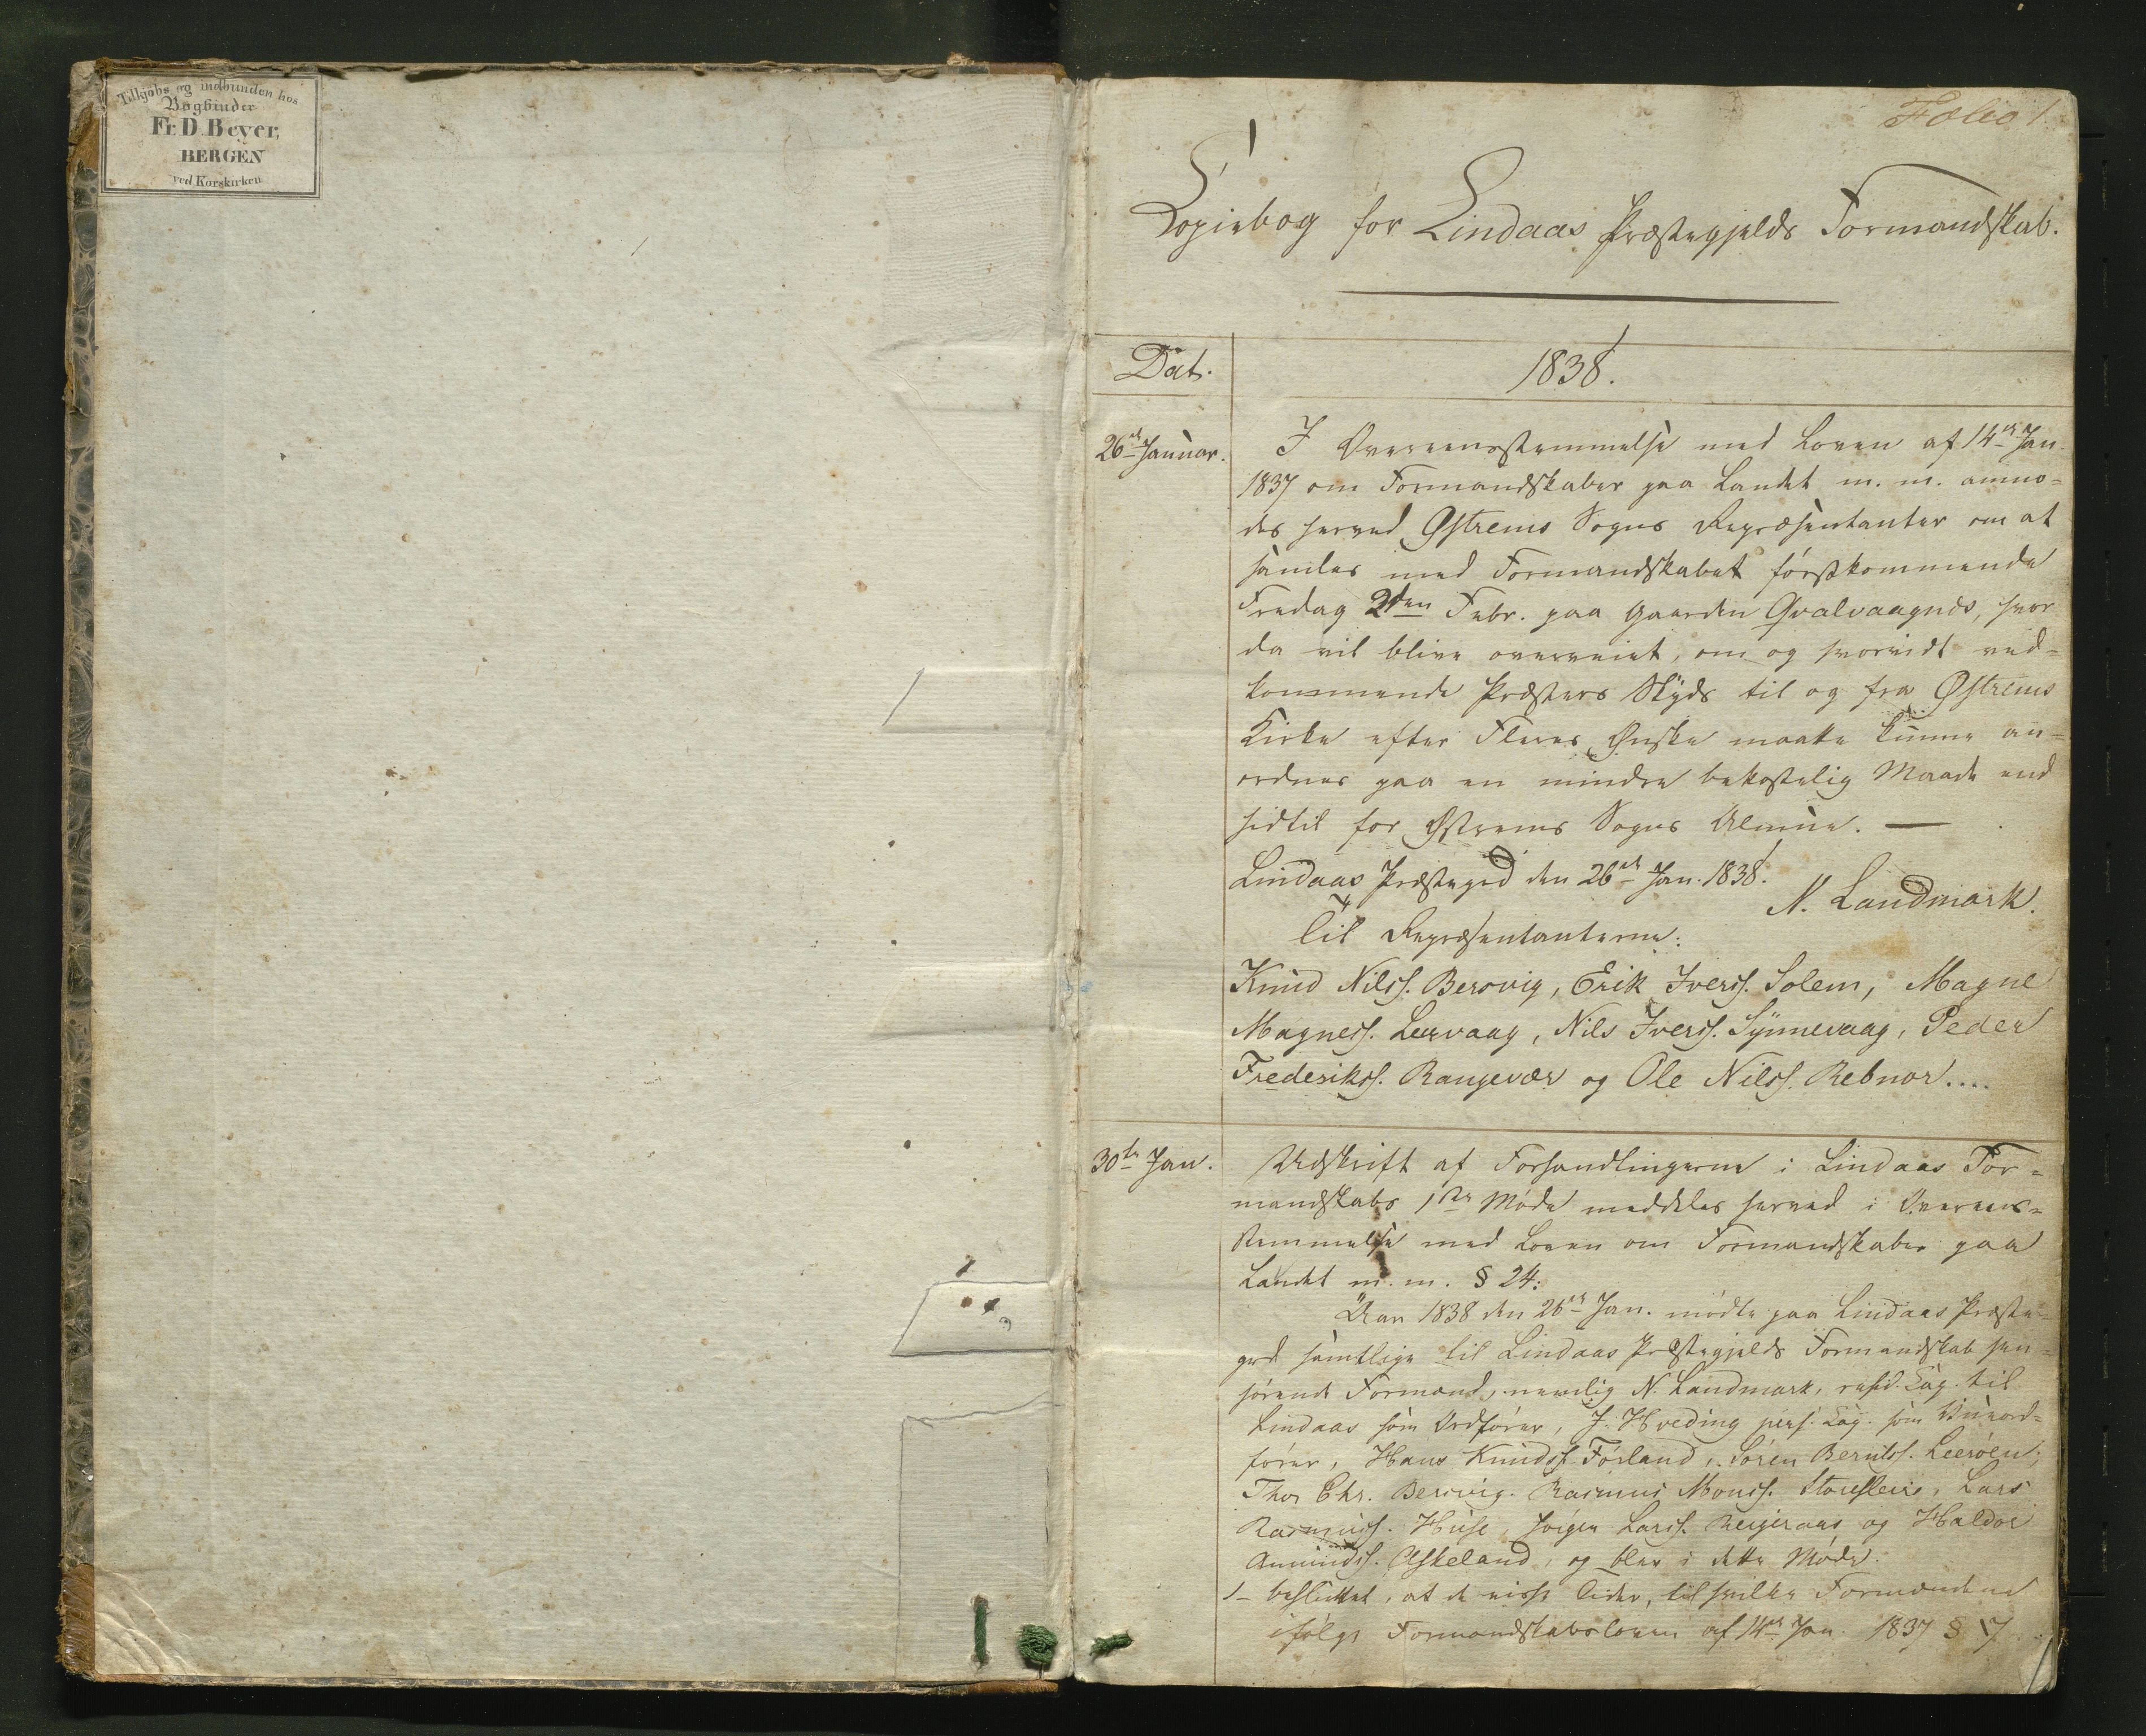 Tilkjøbs og indbunden hos
Bogbinder
Fr. D. Beyer,
BERGEN
ved Korskirken
Folio 1.
Kopiebog for Lindaas Præstegjelds Formandskab.
Dat.
1838.
26de Januar.
I Overeensstemmelse med Loven af 14de Jan.
1837 om Formandskaber paa Landet m. m. anmo-
des herved Østrems Sogns Repræsentanter om at
samles med Formandskabet førstkommende
Fredag 2den Febr. paa Gaarden Qvalvaagnæs, hvor
da vil blive overveiet, om og hvorvidt ved-
kommende Præsters Skyds til og fra Østrems
Kirke efter Fleres Ønske maatte kunne an-
ordnes paa en mindre bekostelig Maade end
hidtil for Østrems Sogns Almue. —
Lindaas Præstegrd den 26de Jan. 1838.
N. Landmark.
Til Repræsentanterne:
Knud Nilss. Berovig, Erik Iverss. Solem, Magne
Magness. Leervaag, Nils Iverss. Synnevaag, Peder
Frederikss. Rangevær og Ole Nilss. Rebnor....
30te Jan.
Udskrift af Forhandlingerne i Lindaas For-
mandskabs 1ste Møde meddeles herved i Overeens-
stemmelse med Loven om Formandskaber paa
Landet m. m. § 24:
"Aar 1838 den 26de Jan. mødte paa Lindaas Præste-
grd samtlige til Lindaas Præstegjelds Formandskab hen-
hørende Formænd, nemlig N. Landmark, resid. Cap. til
Lindaas som Ordfører, J. Hveding pers. Cap. som Viceord-
fører, Hans Knudss. Førland, Søren Berntss. Leerøen,
Thor Chr. Berovig, Rasmus Monss. Storeflere, Lars
Rasmuss. Huse, Jørgen Larss. Reigeraas og Haldor
Anmunds. Askeland, og blev i dette Møde:
1- besluttet, at de visse Tider, til hvilke Formændene
ifølge Formandskabsloven af 14de Jan. 1837 § 17